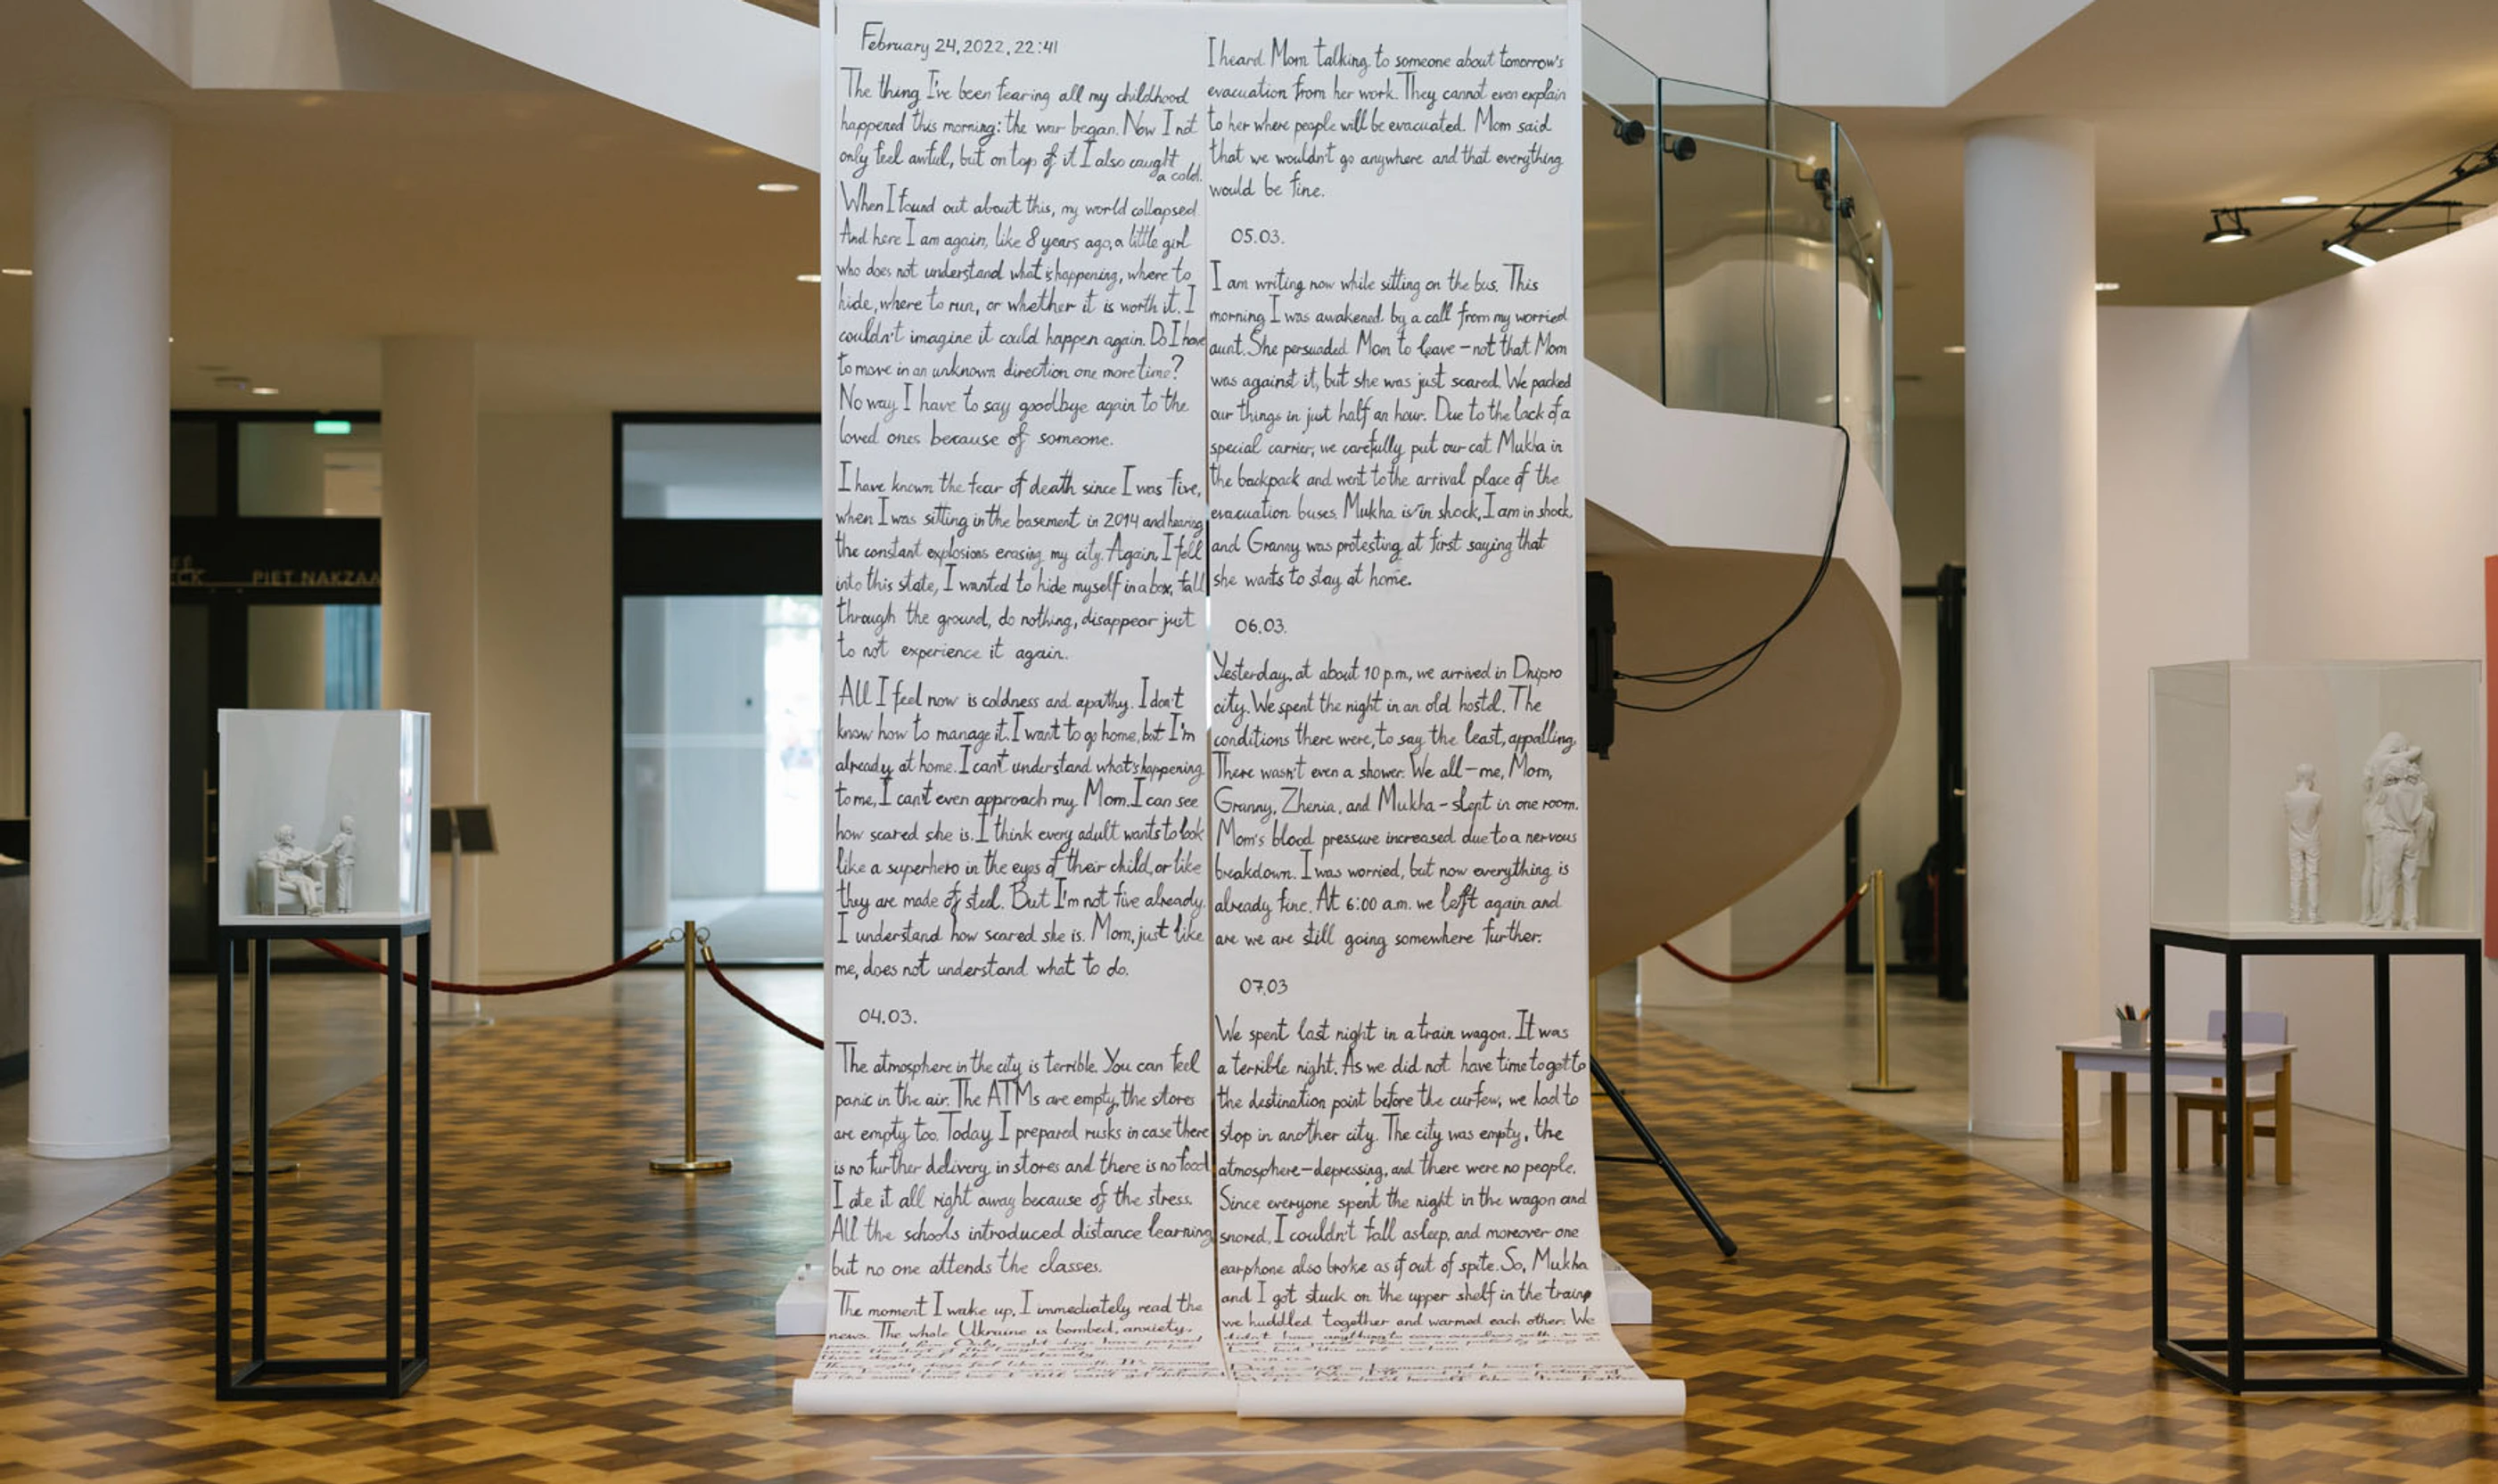 February 24, 2022, 22:41
The thing I've been fearing all my childhood
happened this morning: the war began. Now I not
only feel awful, but on top of it I also caught
a cold.
When I found out about this, my world collapsed.
And here I am again, like 8 years ago, a little girl
who does not understand what is happening, where to
hide, where to run, or whether it is worth it. I
couldn't imagine it could happen again. Do I have
to move in an unknown direction one more time?
No way I have to say goodbye again to the
loved ones because of someone.
I have known the fear of death since I was five,
when I was sitting in the basement in 2014 and hearing
the constant explosions erasing my city. Again, I fell
into this state, I wanted to hide myself in a box, fall
through the ground, do nothing, disappear just
to not experience it again.
All I feel now is coldness and apathy. I don't
know how to manage it. I want to go home, but I'm
already at home. I can't understand what's happening
to me, I can't even approach my Mom. I can see
how scared she is. I think every adult wants to look
like a superhero in the eyes of their child, or like
they are made of steel. But I'm not five already.
I understand how scared she is. Mom, just like
me, does not understand what to do.
04.03.
The atmosphere in the city is terrible. You can feel
panic in the air. The ATMs are empty, the stores
are empty too. Today I prepared rusks in case there
is no further delivery in stores and there is no food.
I ate it all right away because of the stress.
All the schools introduced distance learning,
but no one attends the classes.
The moment I wake up, I immediately read the
news. The whole Ukraine is bombed, anxiety,
I heard Mom talking to someone about tomorrow's
evacuation from her work. They cannot even explain
to her where people will be evacuated. Mom said
that we wouldn't go anywhere and that everything
would be fine.
05.03.
I am writing now while sitting on the bus. This
morning I was awakened by a call from my worried
aunt. She persuaded Mom to leave – not that Mom
was against it, but she was just scared. We packed
our things in just half an hour. Due to the lack of a
special carrier, we carefully put our cat Mukha in
the backpack and went to the arrival place of the
evacuation buses. Mukha is in shock, I am in shock,
and Granny was protesting at first saying that
she wants to stay at home.
06.03.
Yesterday, at about 10 p.m., we arrived in Dnipro
city. We spent the night in an old hostel. The
conditions there were, to say the least, appalling.
There wasn't even a shower. We all – me, Mom,
Granny, Zhenia, and Mukha – slept in one room.
Mom's blood pressure increased due to a nervous
breakdown. I was worried, but now everything is
already fine. At 6:00 a.m. we left again and
are we are still going somewhere further.
07.03
We spent last night in a train wagon. It was
a terrible night. As we did not have time to get to
the destination point before the curfew, we had to
stop in another city. The city was empty, the
atmosphere – depressing, and there were no people.
Since everyone spent the night in the wagon and
snored, I couldn't fall asleep, and moreover one
earphone also broke as if out of spite. So, Mukha
and I got stuck on the upper shelf in the train,
we huddled together and warmed each other. We
PIET NAKZAA